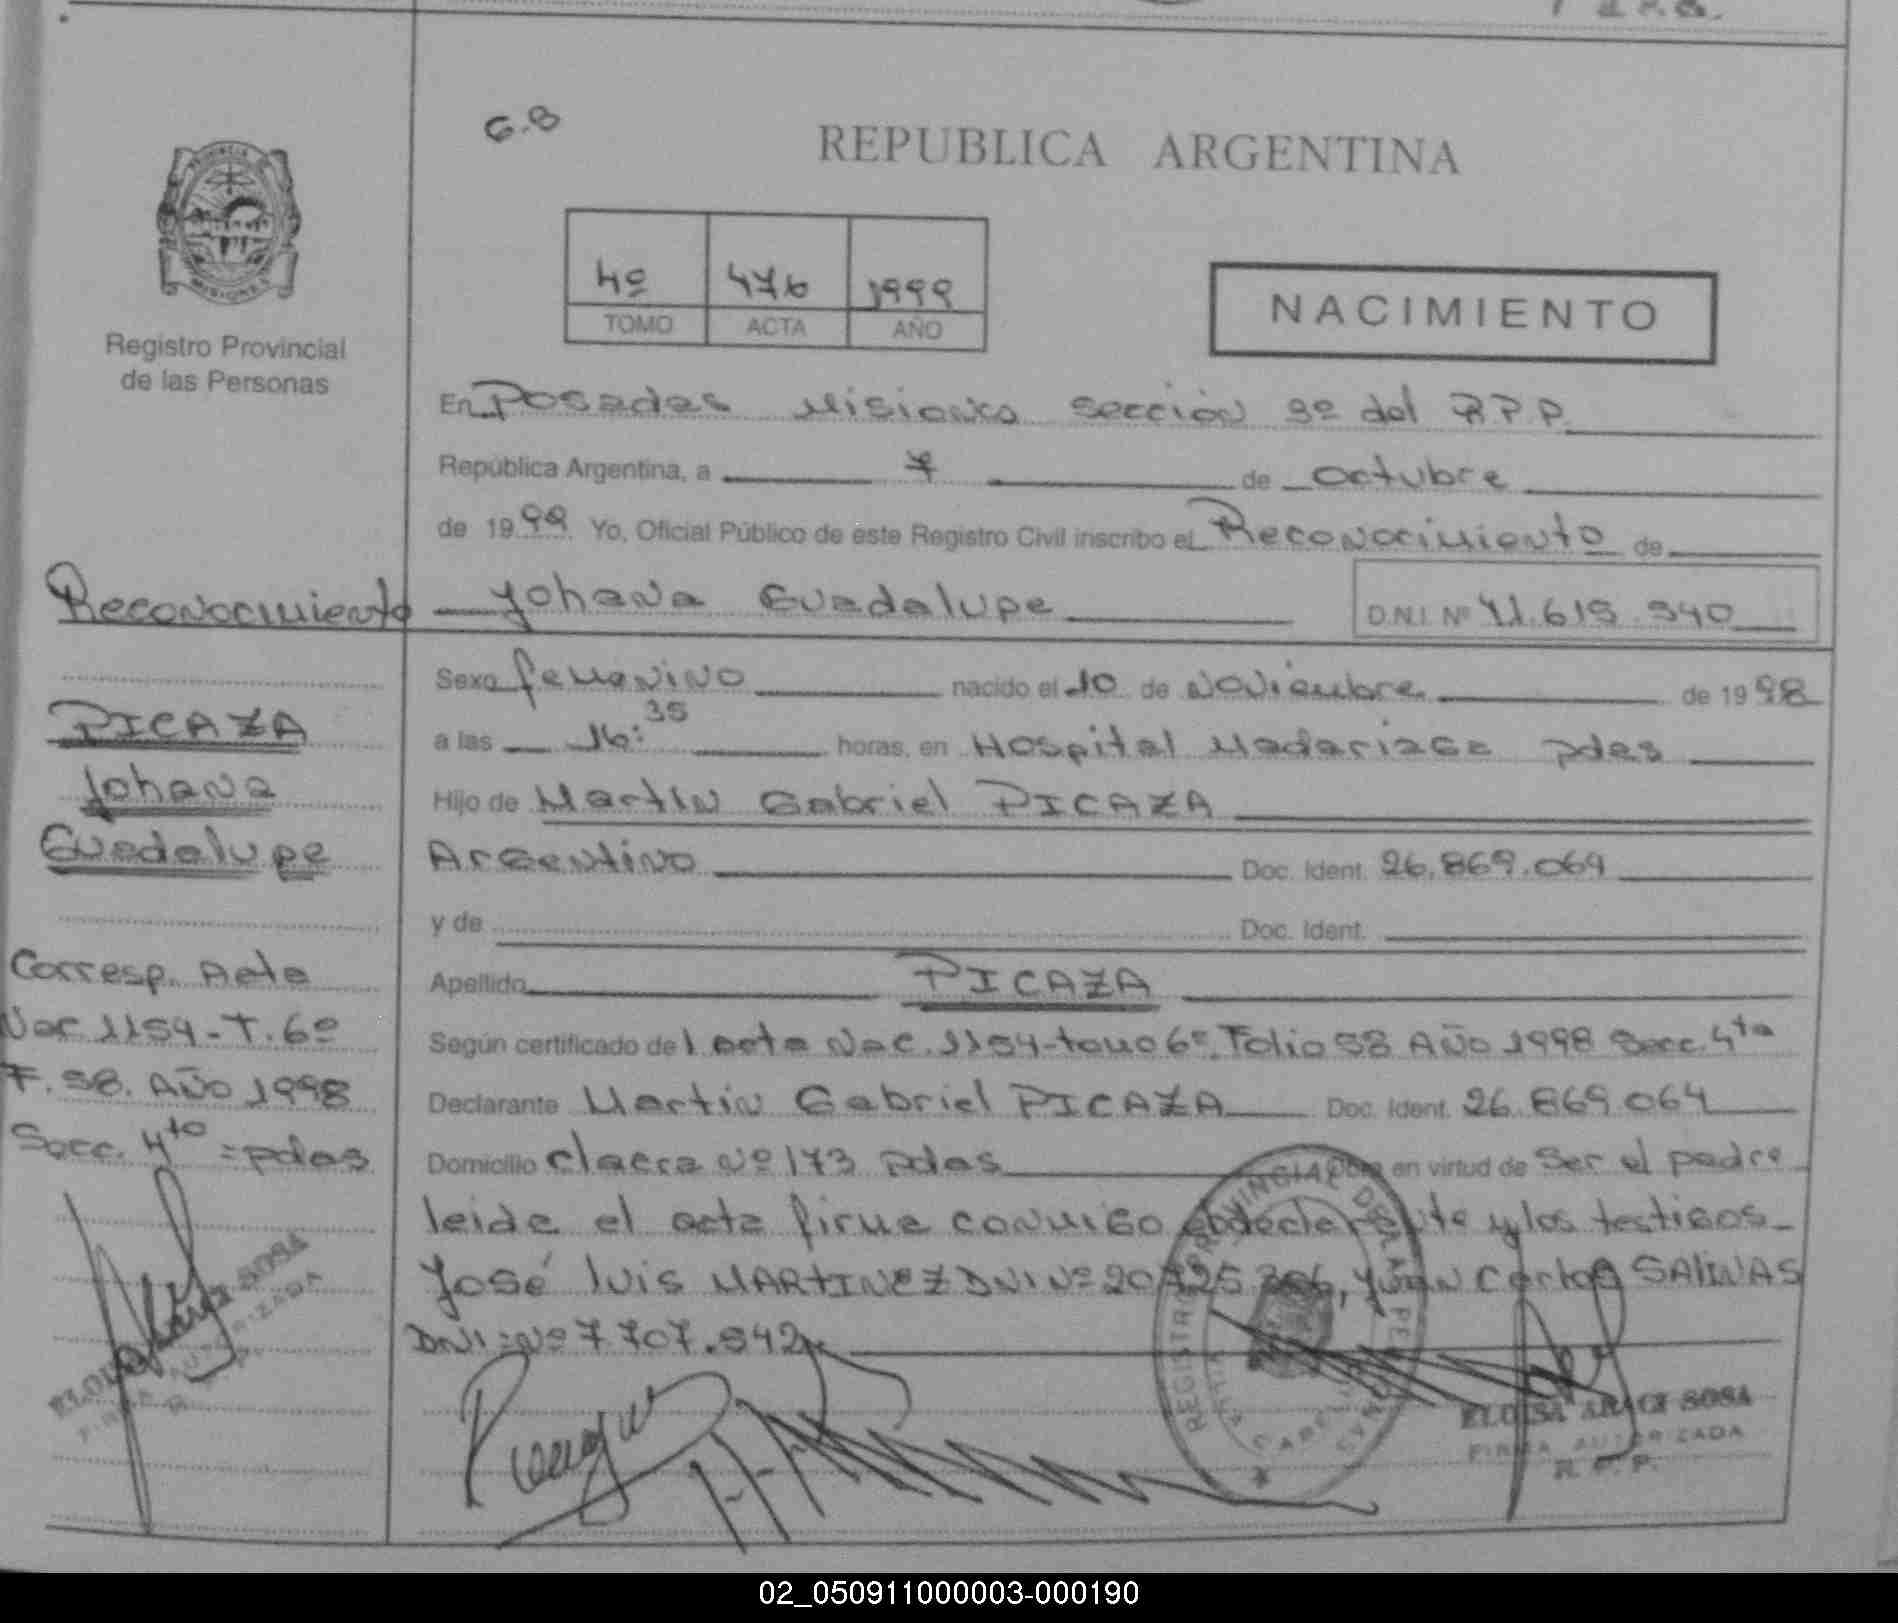 G.B
REPUBLICA ARGENTINA
4º 476 1999
TOMO ACTA AÑO
NACIMIENTO
PROVINCIA DE
MISIONES
Registro Provincial
de las Personas
En Posadas Misiones sección 3º del R.P.P.
República Argentina, a 7 de octubre
de 1999 Yo, Oficial Público de este Registro Civil inscribo el Reconocimiento de
Johana Guadalupe D.N.I. Nº 41.619.340
Reconocimiento
PICAZA
Johana
Guadalupe
Corresp. Acta
Nac 1154-T.6º
F. 58. AÑO 1998
Secc. 4to = pdas
Sexo femenino nacido el 10 de Noviembre de 1998
a las 16:35 horas, en Hospital Madariaga pdas
Hijo de Martín Gabriel PICAZA
Argentino Doc. Ident. 26.869.064
y de Doc. Ident.
Apellido PICAZA
Según certificado del acta Nac. 1154-tomo 6º. Folio 58 AÑO 1998 Secc. 4ta
Declarante Martin Gabriel PICAZA Doc. Ident. 26.869.064
Domicilio chacra Nº 173 pdas en virtud de ser el padre
leida el acta firma conmigo el declarante y los testigos
José luis MARTINEZ DNI Nº 20. Juan Carlos SALINAS
DNI=Nº 7.707.542
REGISTRO PROVINCIAL DE LAS PERSONAS
ELOISA ARACI SOSA
FIRMA AUTORIZADA
R. P. P.
SOSA
FIRMA AUTORIZADA
02_050911000003-000190